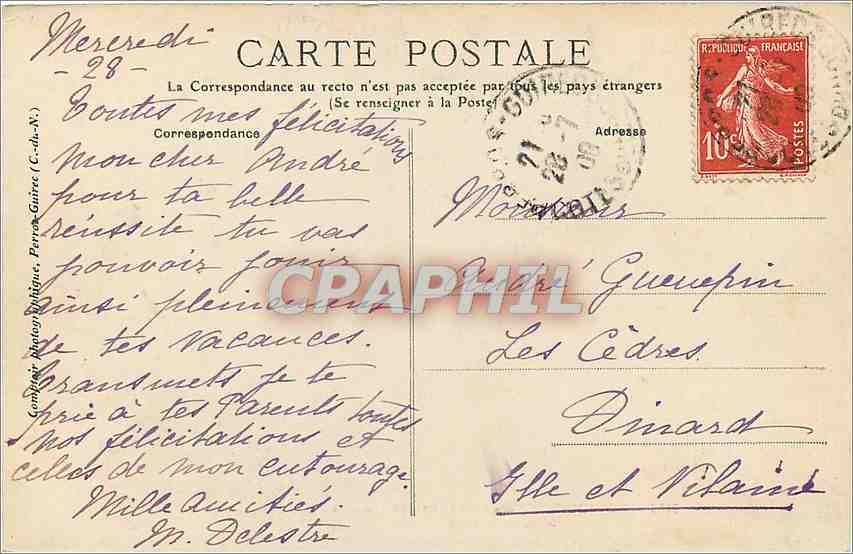 Mercredi
- 28 -
CARTE POSTALE
La Correspondance au recto n'est pas acceptée par tous les pays étrangers
(Se renseigner à la Poste)
Correspondance
Adresse
Toutes mes félicitations
mon cher André
pour ta belle
réussite tu vas
pouvoir jouir
ainsi pleinement
de tes vacances.
Transmets je te
prie à tes Parents toutes
nos félicitations et
celles de mon entourage.
Mille amitiés.
M. Delestre
Monsieur
André Guenepin
Les Cèdres
Dinard
Ille et Vilaine
REPUBLIQUE FRANÇAISE
10c
POSTES
21
28 - 7
09
Comptoir photographique, Perros-Guirec (C.-du-N.)
CPAPHIL